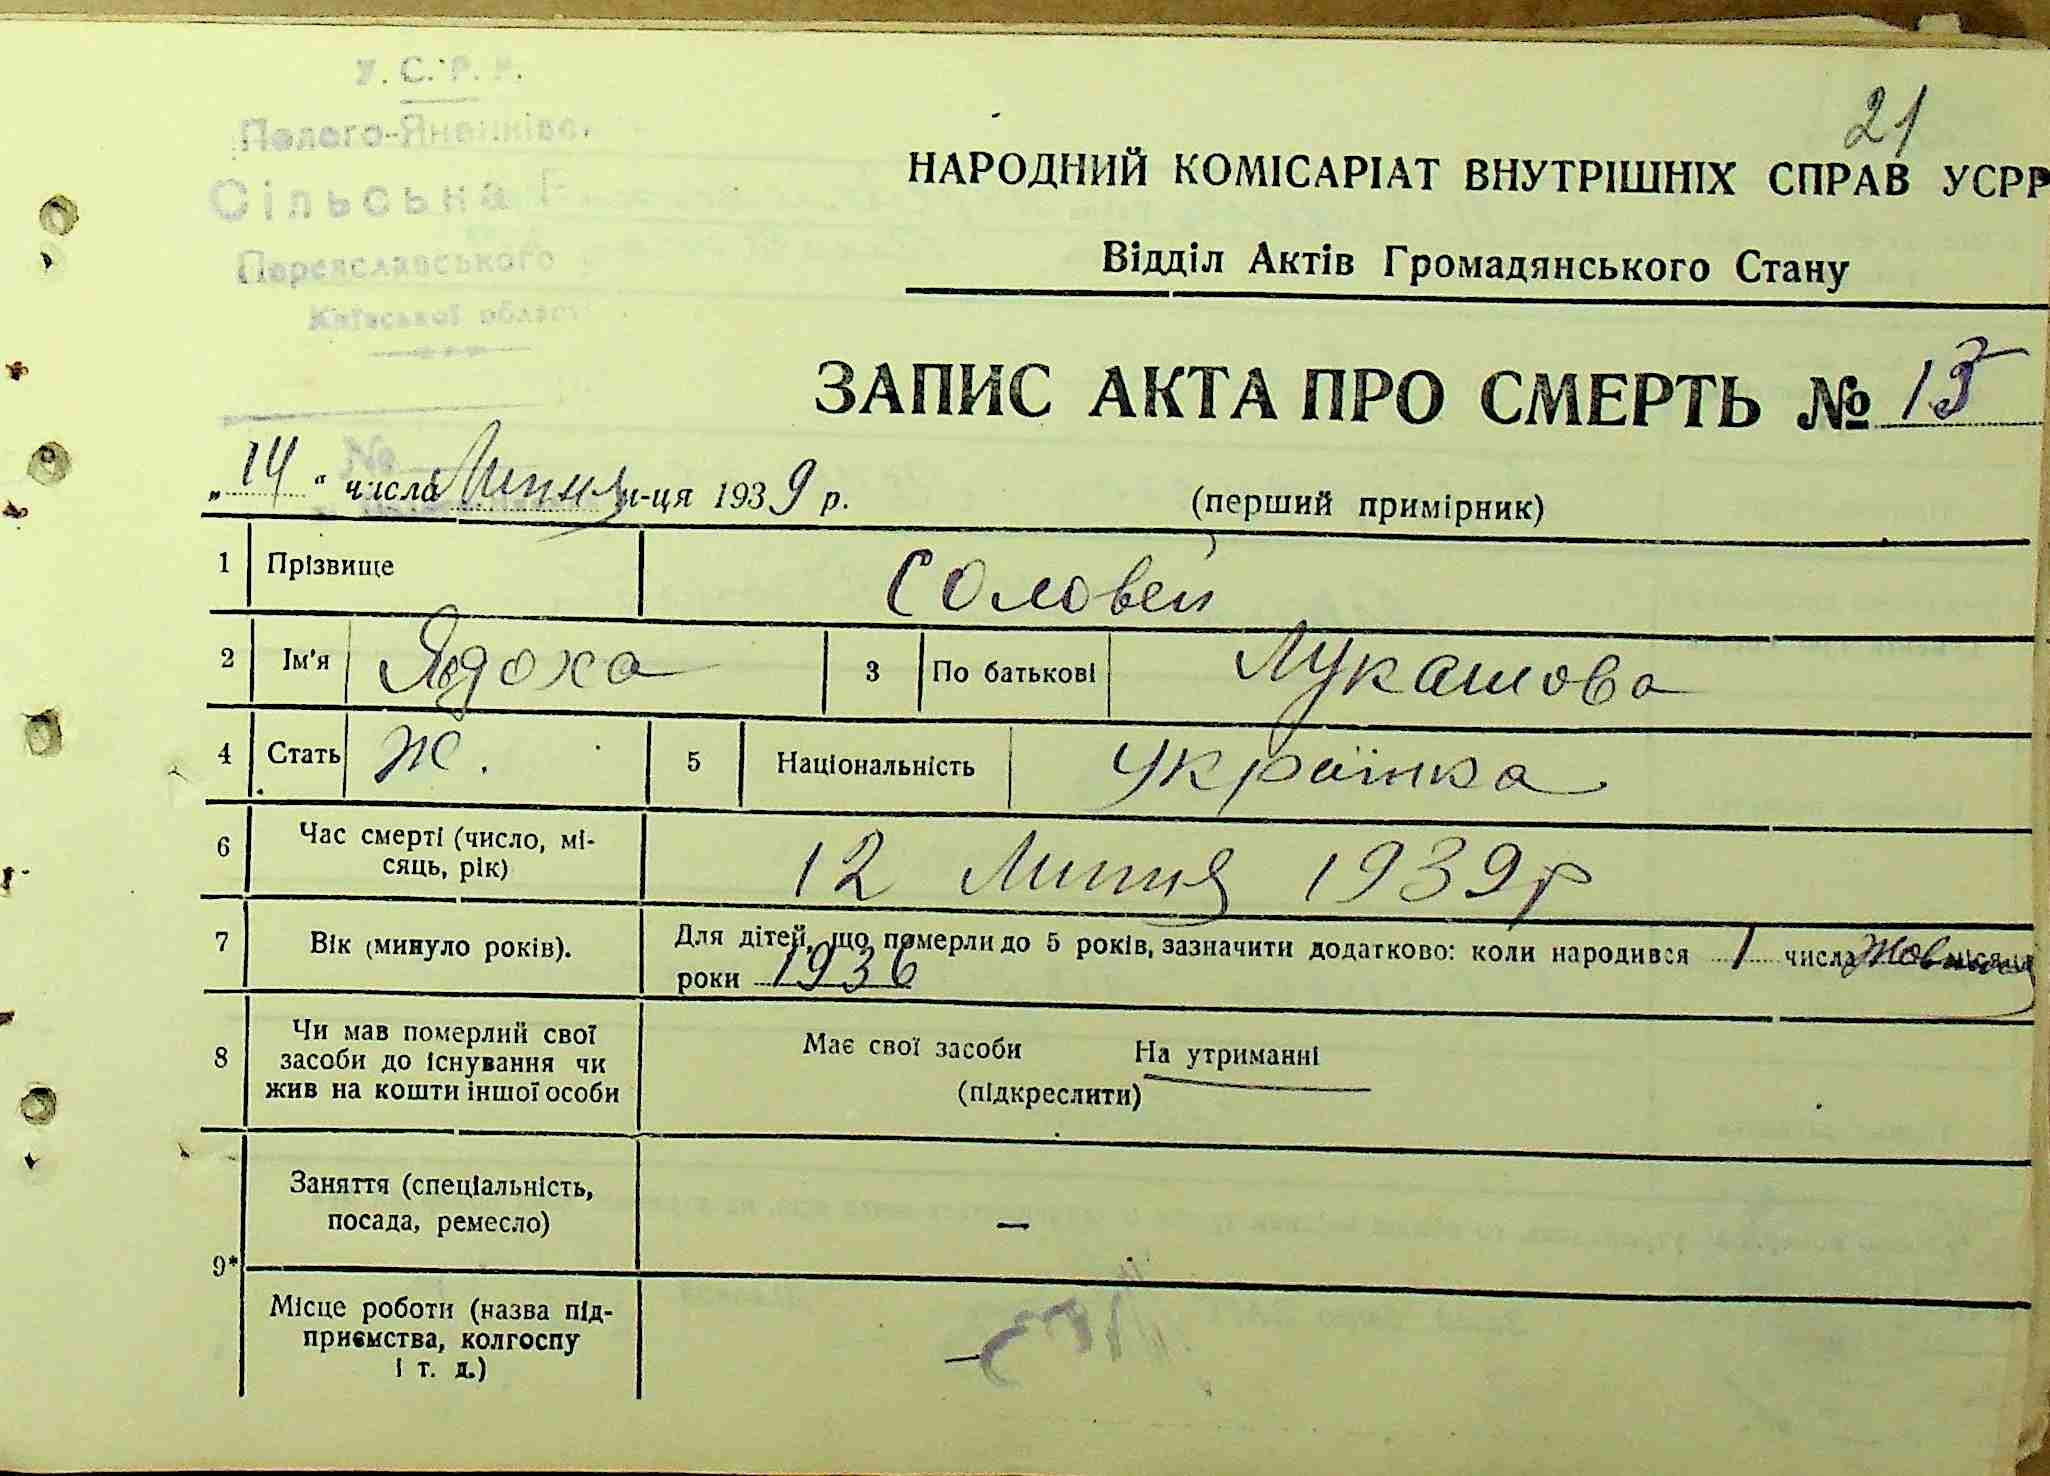 21
У. С. Р. Р.
Полого-Яненківс.
Сільська
Переяславського
Київської област
НАРОДНИЙ КОМІСАРІАТ ВНУТРІШНІХ СПРАВ УСРР
Відділ Актів Громадянського Стану
ЗАПИС АКТА ПРО СМЕРТЬ № 15
№
„ 14 “ числа Липня м-ця 1939 р.
(перший примірник)
1 Прізвище Соловей
2 Ім'я Явдоха 3 По батькові Лукашова
4 Стать Ж. 5 Національність Українка
6 Час смерті (число, мі-
сяць, рік) 12 Липня 1939 р
7 Вік (минуло років). Для дітей, що померли до 5 років, зазначити додатково: коли народився 1 числа Жовтня місяця
роки 1936
8 Чи мав померлий свої
засоби до існування чи
жив на кошти іншої особи
Має свої засоби На утриманні
(підкреслити)
9* Заняття (спеціальність,
посада, ремесло) —
Місце роботи (назва під-
приємства, колгоспу
і т. д.) —